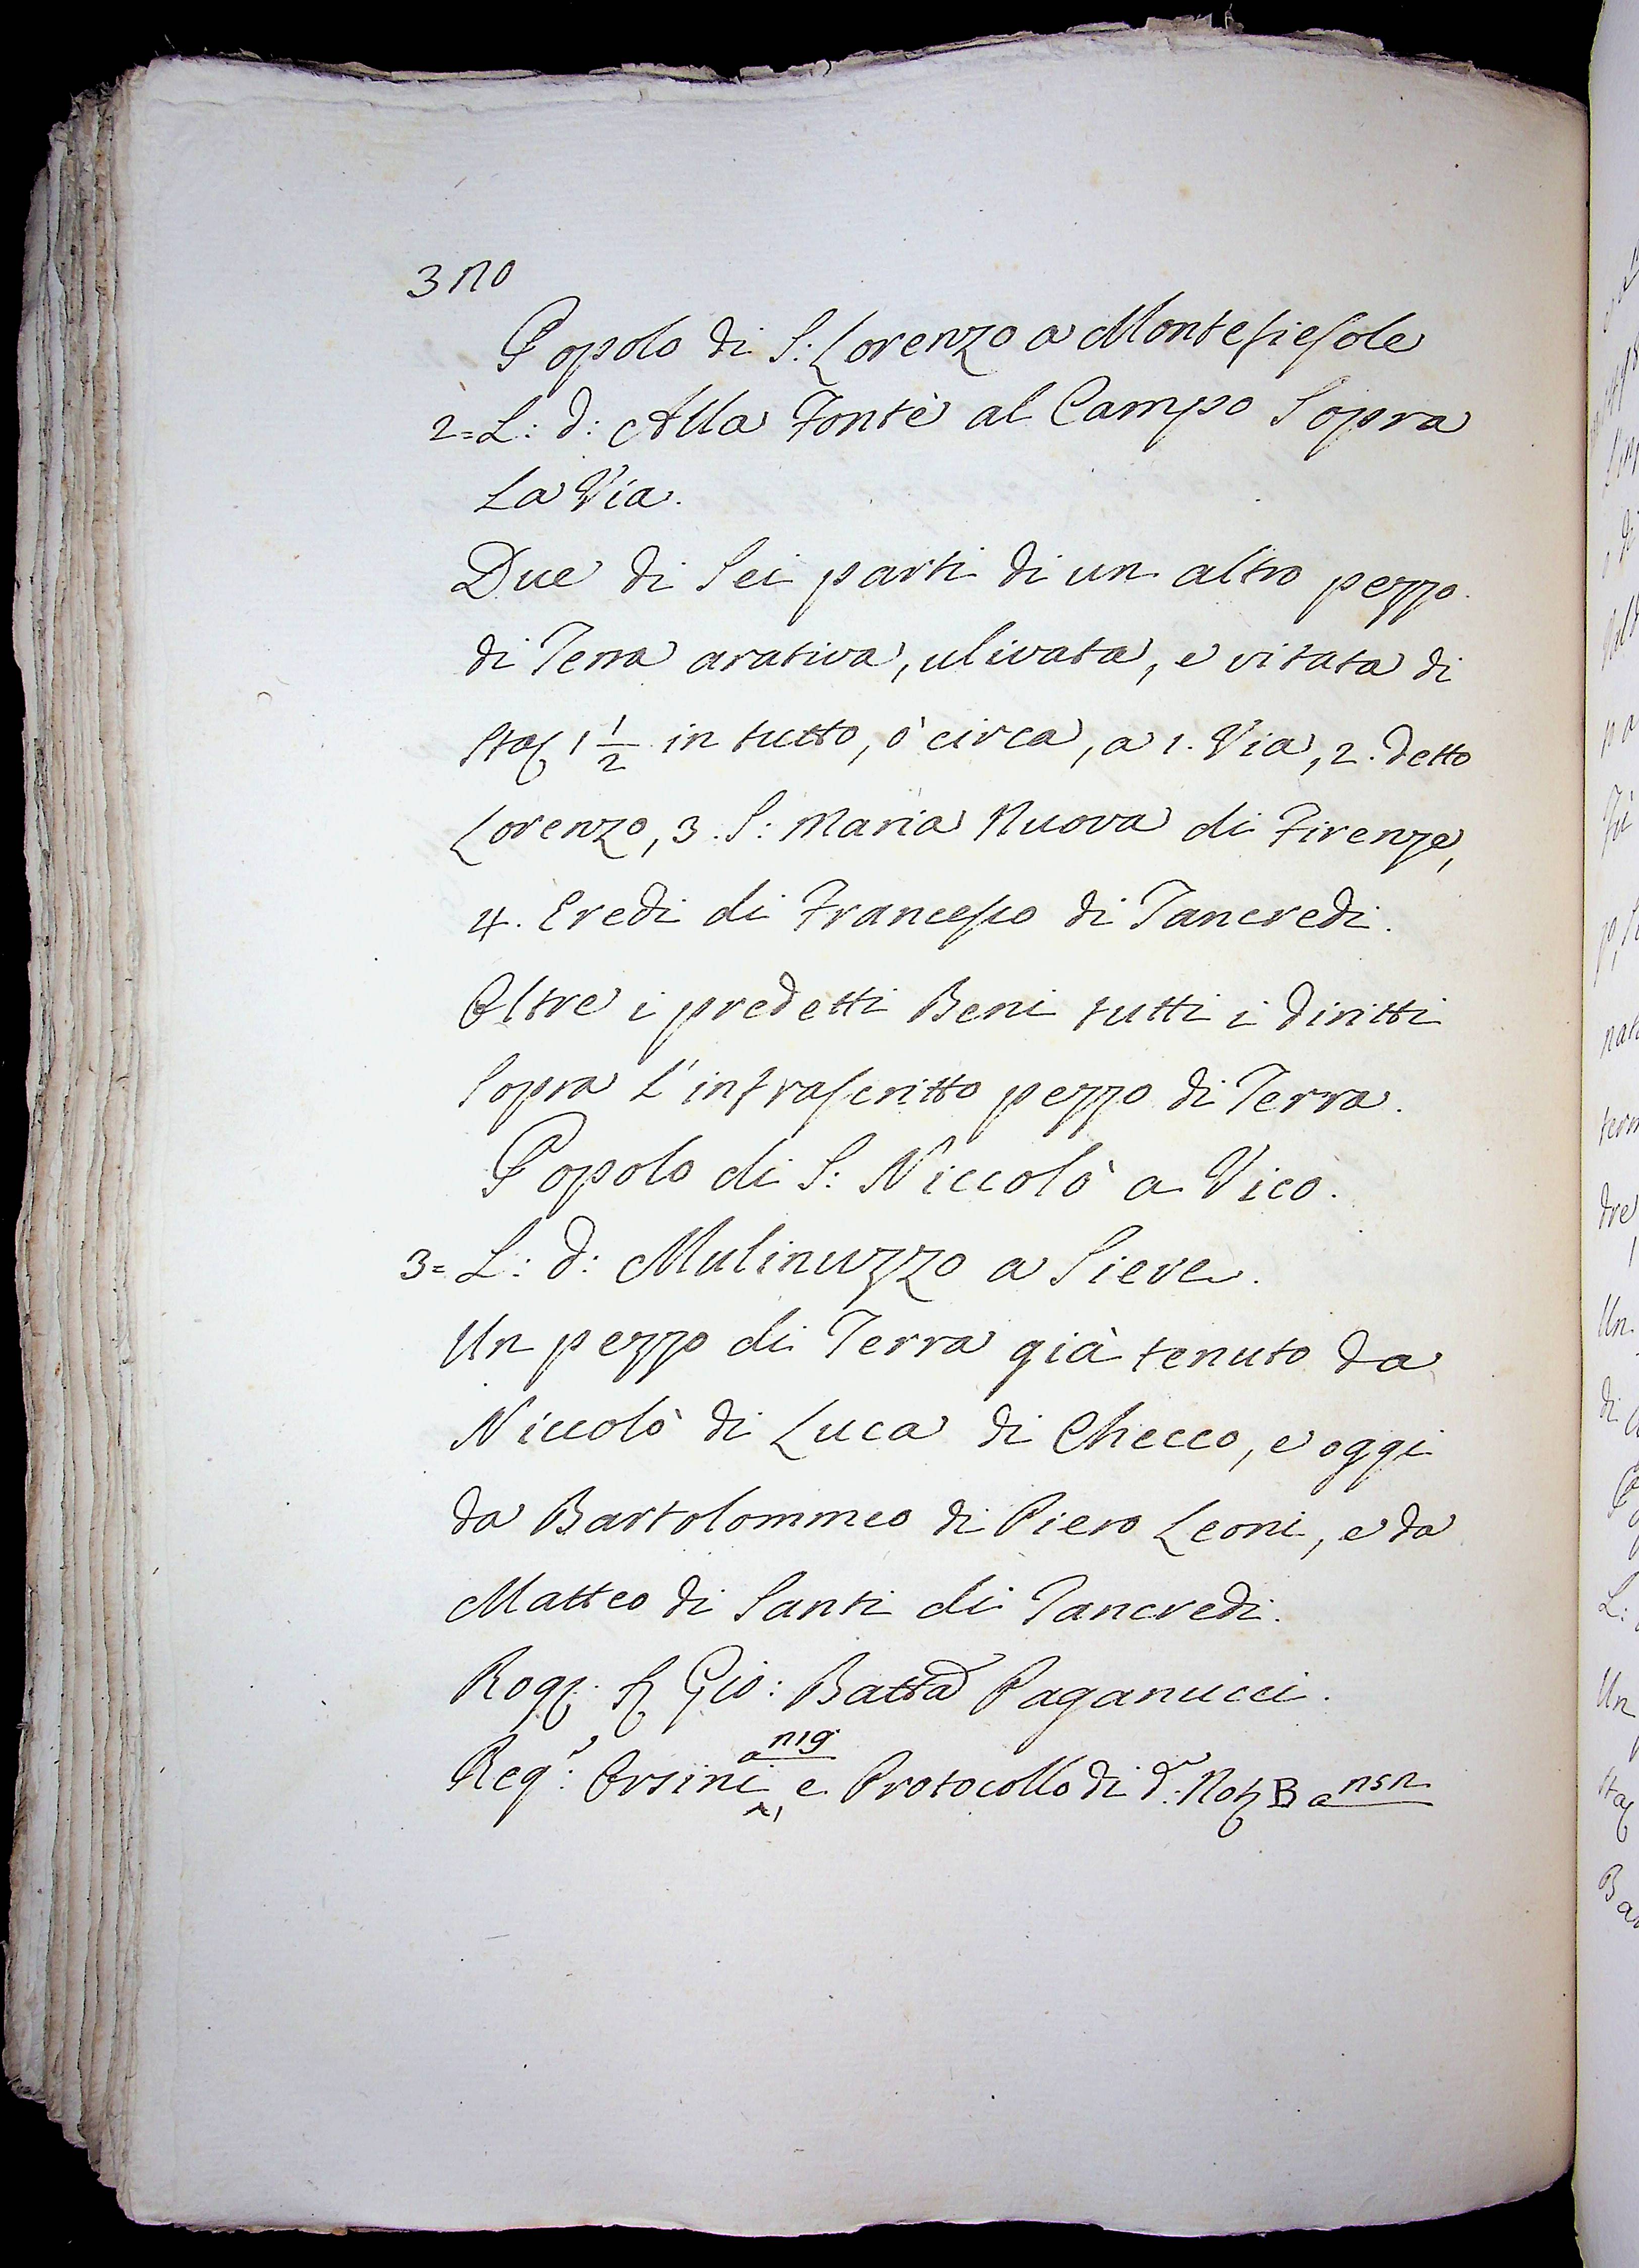 3no
Popolo di S: Lorenzo a Montefiesole
2= L: d: Alla Fonte al Campo Sopra
La Via.
Due di Sei parti di un altro pezzo
di Terra arativa, ulivata, e vitata di
Staj 1 1/2 in tutto, ò circa, a 1. Via, 2. detto
Lorenzo, 3. S: Maria Nuova di Firenze,
4. Eredi di Francesco di Tancredi.
Oltre i predetti Beni tutti i diritti
Sopra L'infrascritto pezzo di Terra.
Popolo di S: Niccolò a Vico.
3= L: d: Mulinuzzo a Sieve.
Un pezzo di Terra già tenuto da
Niccolò di Luca di Checco, e oggi
da Bartolommeo di Piero Leoni, e da
Matteo di Santi di Tancredi.
Rog. Gio: Batta Paganucci.
a nig
Reg.: Orsini, e Protocollo di d. Not B a nsn